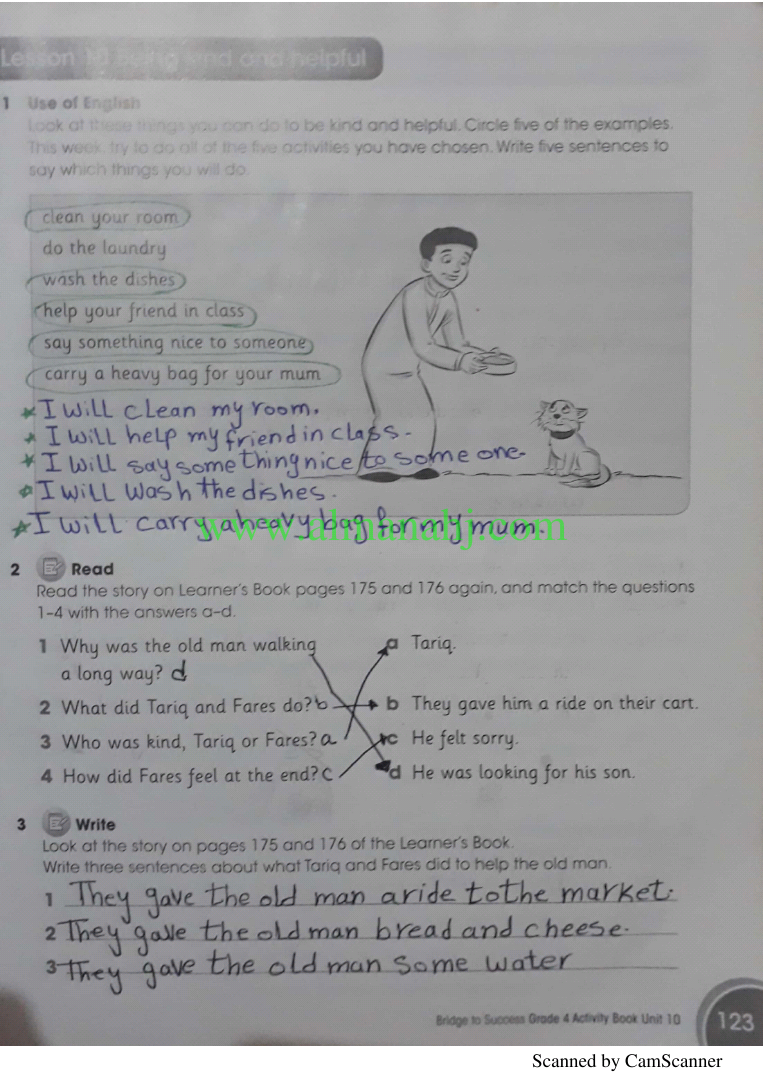 Lesson 10 Being kind and helpful
1 Use of English
Look at these things you can do to be kind and helpful. Circle five of the examples.
This week, try to do all of the five activities you have chosen. Write five sentences to
say which things you will do.
clean your room
do the laundry
wash the dishes
help your friend in class
say something nice to someone
carry a heavy bag for your mum
I will clean my room.
I will help my friend in class.
I will say something nice to some one.
I will wash the dishes.
I will carry a heavy bag for my mum.
www.almanahj.com
2 Read
Read the story on Learner's Book pages 175 and 176 again, and match the questions
1–4 with the answers a–d.
1 Why was the old man walking a Tariq.
a long way? d
2 What did Tariq and Fares do? b b They gave him a ride on their cart.
3 Who was kind, Tariq or Fares? a c He felt sorry.
4 How did Fares feel at the end? c d He was looking for his son.
3 Write
Look at the story on pages 175 and 176 of the Learner's Book.
Write three sentences about what Tariq and Fares did to help the old man.
1 They gave the old man a ride to the market.
2 They gave the old man bread and cheese.
3 They gave the old man some water
Bridge to Success Grade 4 Activity Book Unit 10 123
Scanned by CamScanner